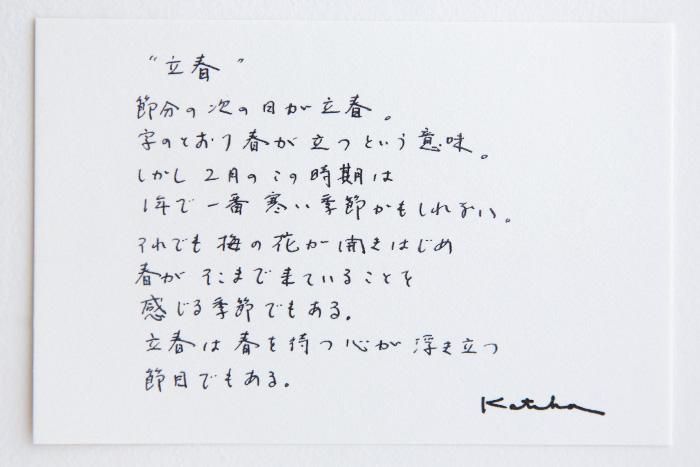 “立春”
節分の次の日が立春。
字のとおり春が立つという意味。
しかし2月のこの時期は
1年で一番寒い季節かもしれない。
それでも梅の花が開きはじめ
春がそこまで来ていることを
感じる季節でもある。
立春は春を待つ心が浮き立つ
節目でもある。